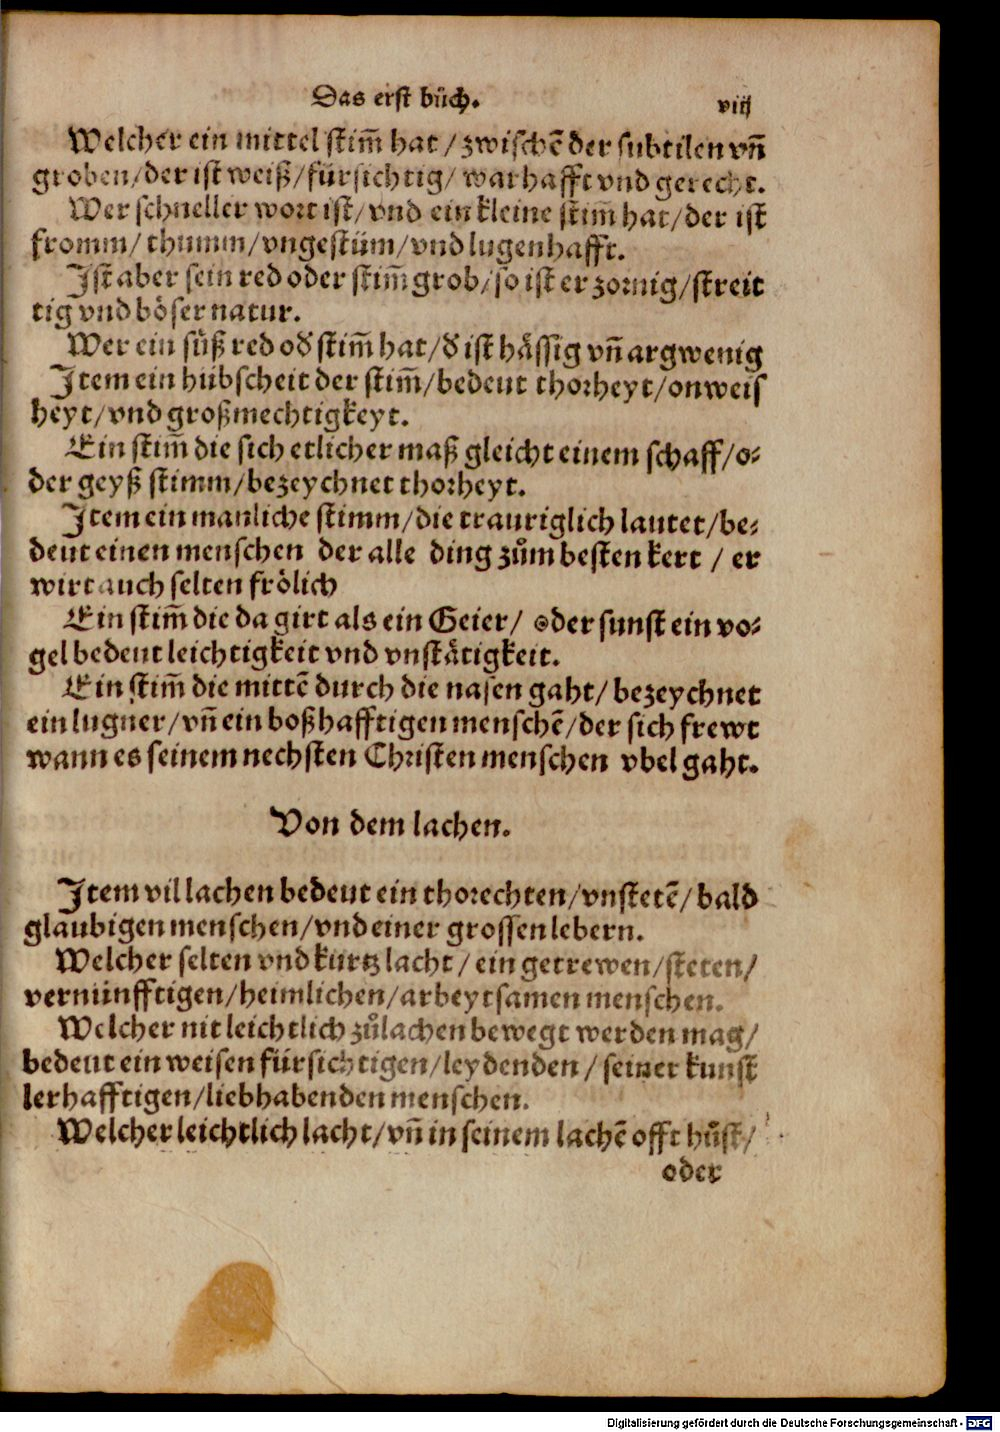 Das erst bůch. viij
Welcher ein mittel stim̃ hat / zwischẽ der subtilen vñ
groben/der ist weiß/fürsichtig/ warhafft vnd gerecht.
Wer schneller wort ist/vnd ein kleine stim̃ hat/der ist
fromm/ thumm/vngestüm/vnd lugenhafft.
Ist aber sein red oder stim̃ grob/so ist er zornig/streit
tig vnd böser natur.
Wer ein süß red od̕ stim̃ hat/d̕ ist hässig vñ argwenig
Item ein hübscheit der stim̃/bedeut thorheyt/onweis
heyt/vnd großmechtigkeyt.
Ein stim̃ die sich etlicher maß gleicht einem schaff/o-
der geyß stimm/bezeychnet thorheyt.
Item ein manliche stimm/die trauriglich lautet/be-
deut einen menschen der alle ding zům besten kert / er
wirt auch selten frölich
Ein stim̃ die da girt als ein Geier/ oder sunst ein vo-
gel bedeut leichtigkeit vnd vnstätigkeit.
Ein stim̃ die mittẽ durch die nasen gaht/ bezeychnet
ein lugner/vñ ein boßhafftigen menschẽ/der sich frewt
wann es seinem nechsten Christen menschen vbel gaht.
Von dem lachen.
Item vil lachen bedeut ein thorechten/vnstetẽ/ bald
glaubigen menschen/vnd einer grossen lebern.
Welcher selten vnd kurtz lacht / ein getrewen/steten/
vernünfftigen/heimlichen/arbeytsamen menschen.
Welcher nit leichtlich zůlachen bewegt werden mag/
bedeut ein weisen fürsichtigen/leydenden / seiner kunst
lerhafftigen/liebhabenden menschen.
Welcher leichtlich lacht/vñ in seinem lachẽ offt hůst/
oder
Digitalisierung gefördert durch die Deutsche Forschungsgemeinschaft - DFG